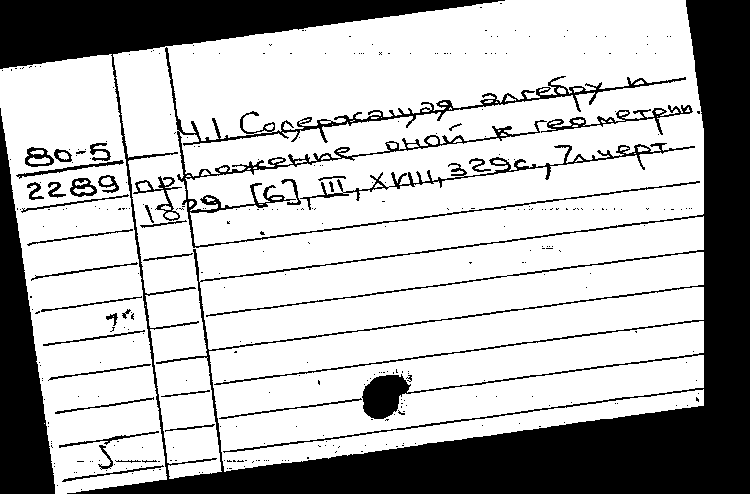 Ч.I. Содержащая алгебру и
80-5
приложение оной к геометрии.
2289
1829. [6], III, XVIII, 329с., 7л.черт
5